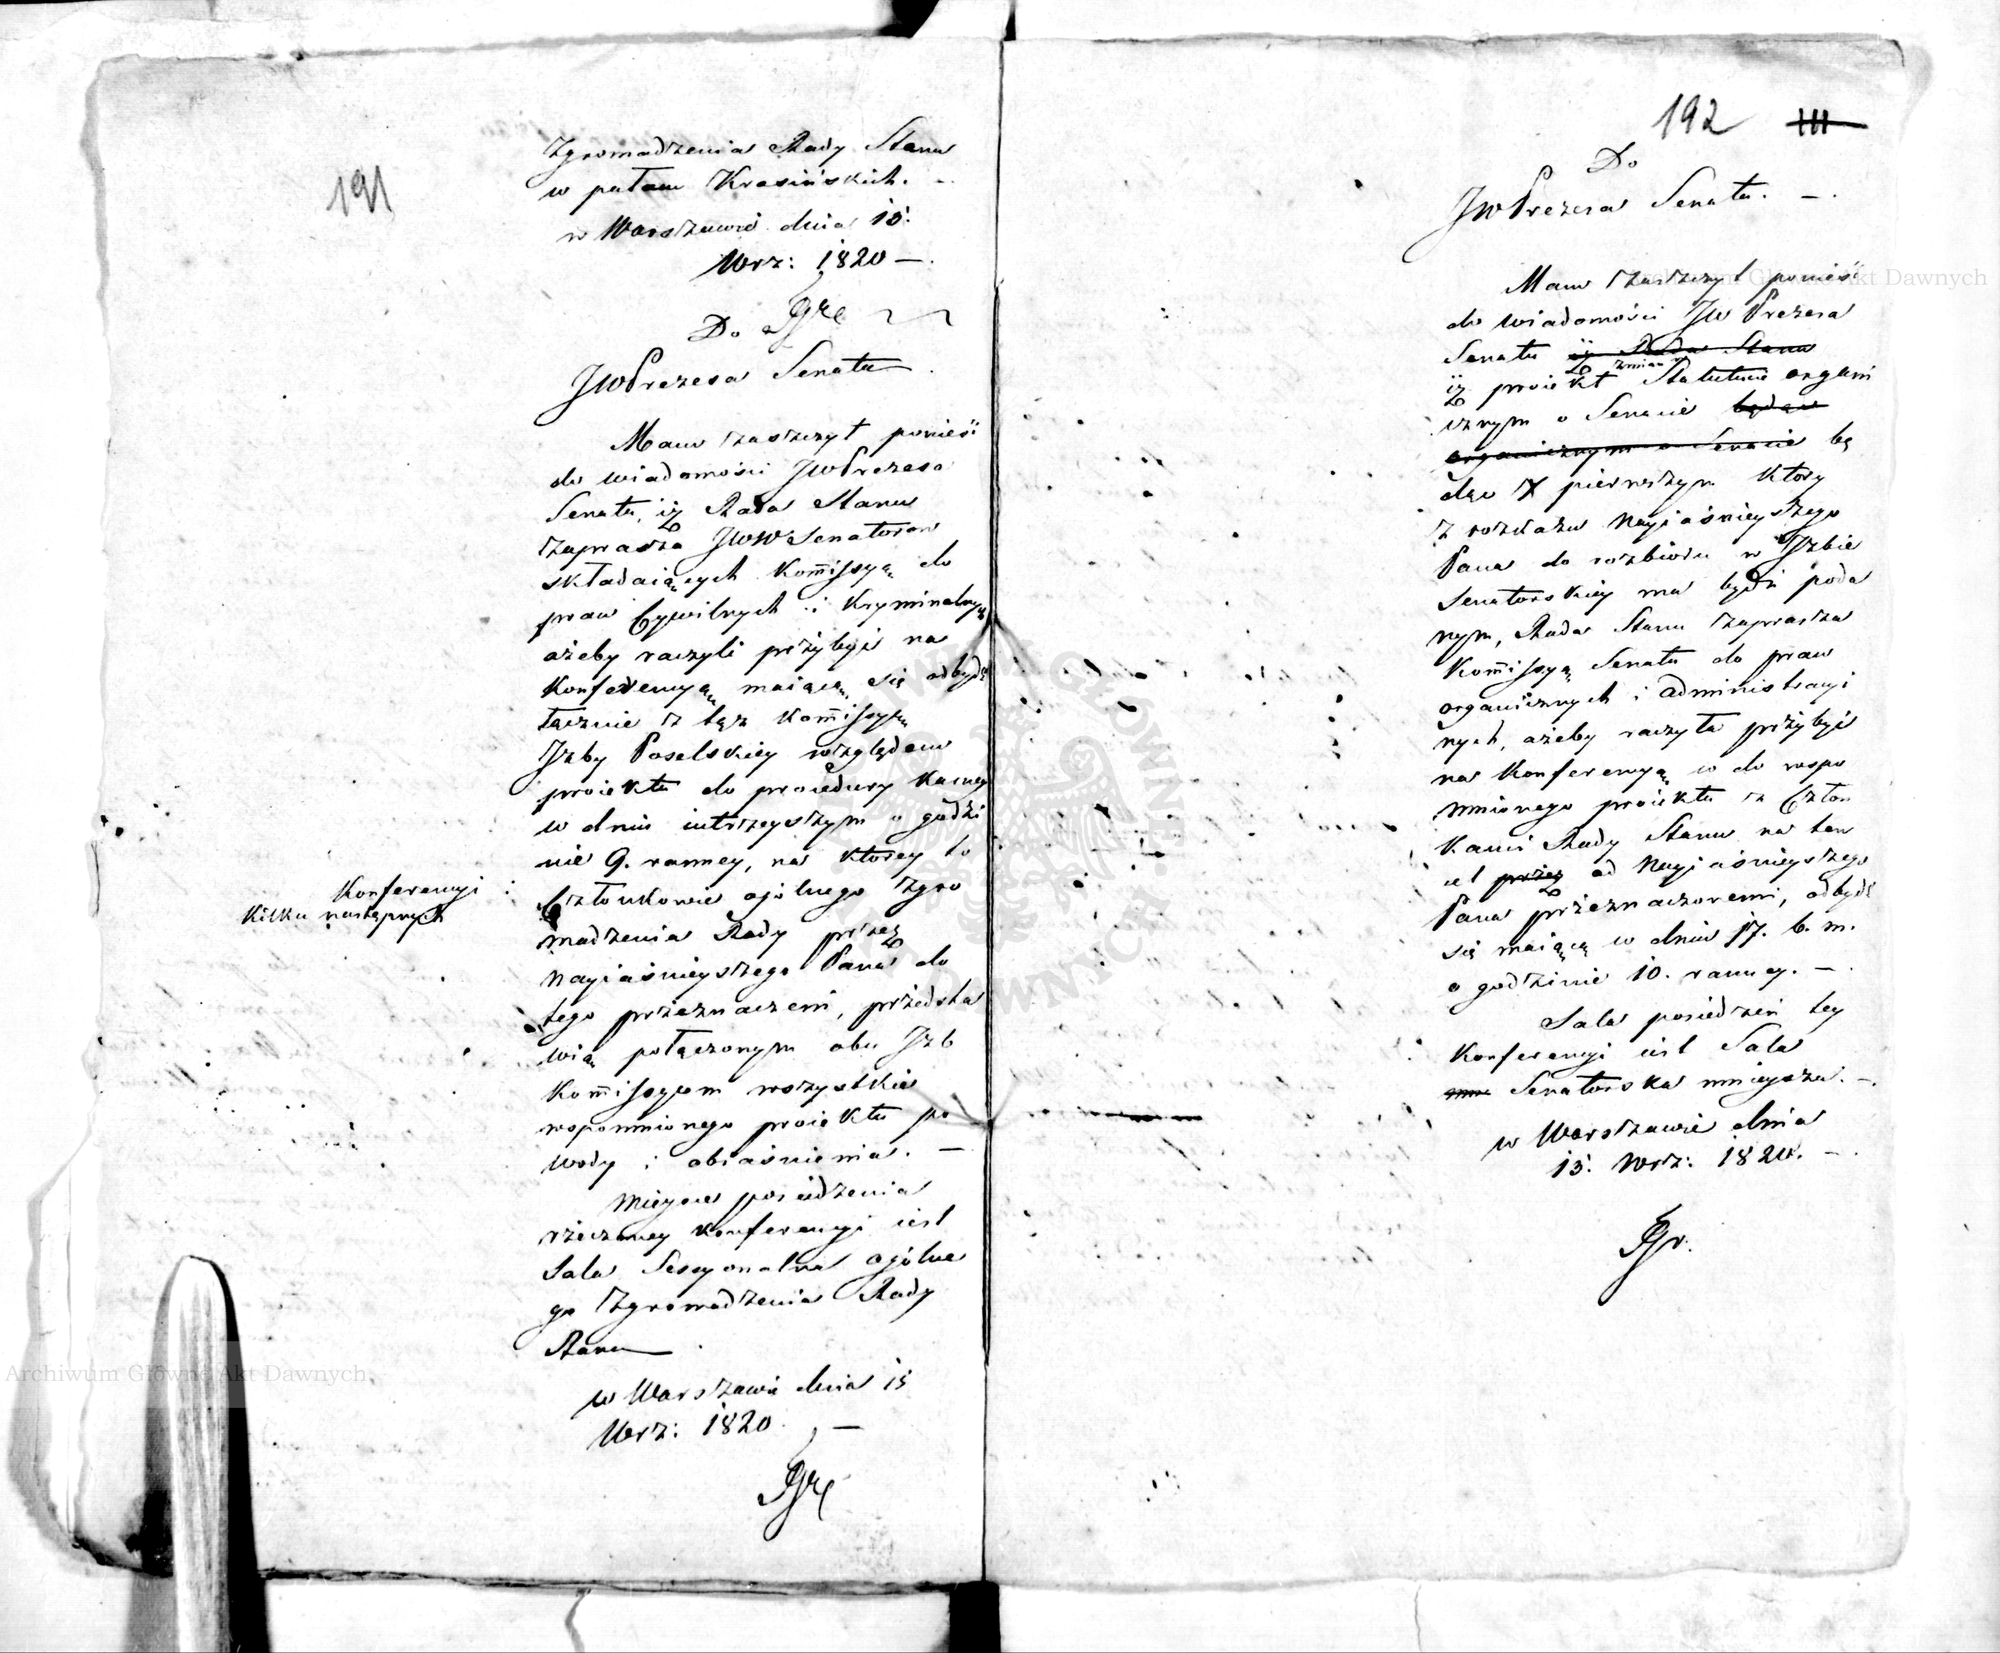 191
Zgromadzenia Rady Stanu
w pałacu Krasińskich. -
w Warszawie dnia 15.
Wrz: 1820 -
Do
JW Prezesa Senatu
Mam zaszczyt ponieść
do wiadomości JW Prezesa
Senatu, iż Rada Stanu
zaprasza JWW Senatorow
składaiących Kommissyą do
praw Cywilnych i Kryminalnych
ażeby raczyli przybyć na
Konferencyą maiącą się odbydź
łącznie z tąż Kommissyą
Izby Poselskiey względem
proiektu do procedury karney
w dniu iutrzeyszym o godzi
nie 9. ranney, na ktorey to
Konferencyi i
kilku następnych
Członkowie ogólnego Zgro
madzenia Rady przez
Nayiaśnieyszego Pana do
tego przeznaczeni, przedsta
wią połączonym obu Izb
Kommissyom wszystkie
wspomnionego proiektu po
wody i obiaśnienia. -
Mieysce posiedzenia
rzeczoney Konferencyi iest
Sala Sessyonalna ogólne
go Zgromadzenia Rady
Stanu
w Warszawie dnia 15
Wrz: 1820. -
192 III
Do
JW Prezesa Senatu. -
Mam zaszczyt ponieść
do wiadomości JW Prezesa
Senatu iż Rada Stanu
zmian
iż proiekt Statutu organi
cznym o Senacie będąc
organicznym o Senacie bę
dąc pierwszym który
z rozkazu Nayiaśnieyszego
Pana do rozbioru w Izbie
Senatorskiey ma bydź poda
nym, Rada Stanu zaprasza
Kommissyą Senatu do praw
organicznych i administracyi
nych, ażeby raczyła przybyć
na Konferencyą w do wspo
mnionego proiektu z Człon
kami Rady Stanu na ten
cel przez od Nayiaśnieyszego
Pana przeznaczonemi, odbydź
się maiącą w dniu 17. b. m.
o godzinie 10. ranney. -
Sala posiedzeń tey
Konferencyi iest Sala
Senatorska mnieysza. -
w Warszawie dnia
15. Wrz: 1820. -
Archiwum Główne Akt Dawnych
Archiwum Główne Akt Dawnych